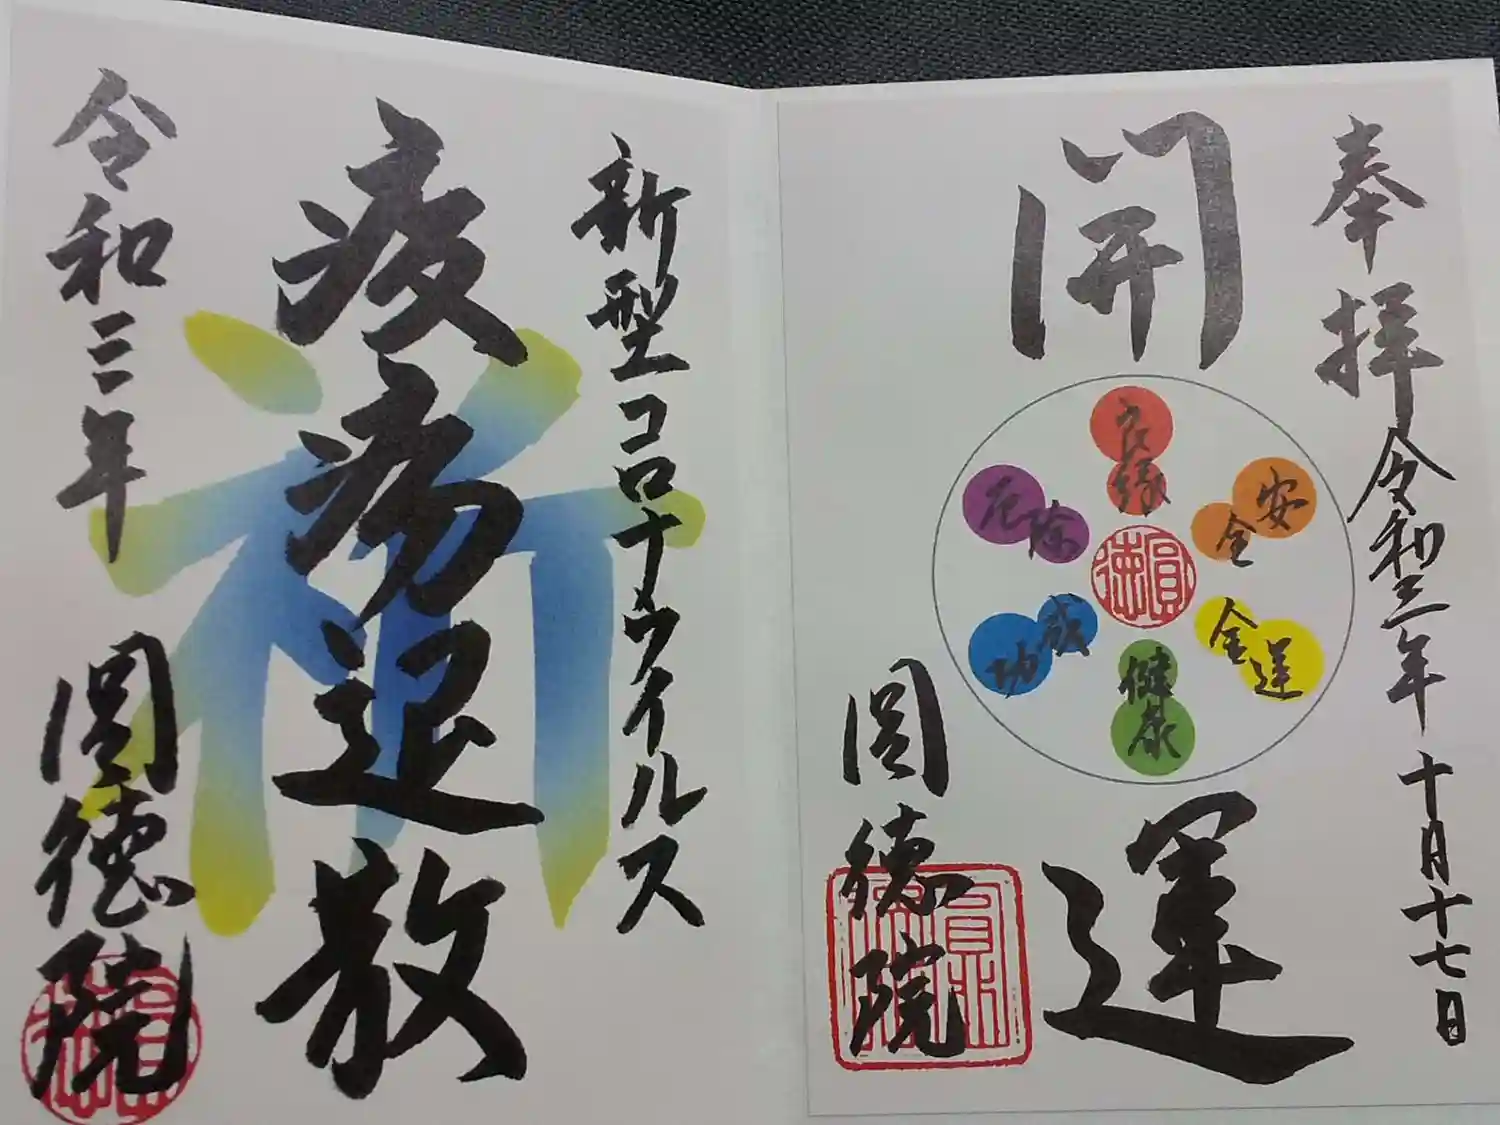 奉拝 令和三年 十月十七日
開運
良縁
安全
金運
健康
成功
厄除
圓徳
圓徳院
新型コロナウイルス
疫病退散
祈
令和三年
圓徳院